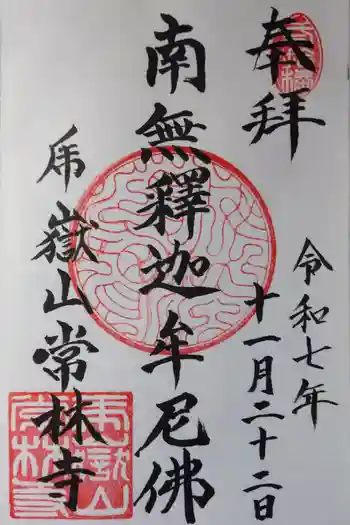 奉拝
令和七年
十一月二十二日
南無釋迦牟尼佛
嶽山常林寺